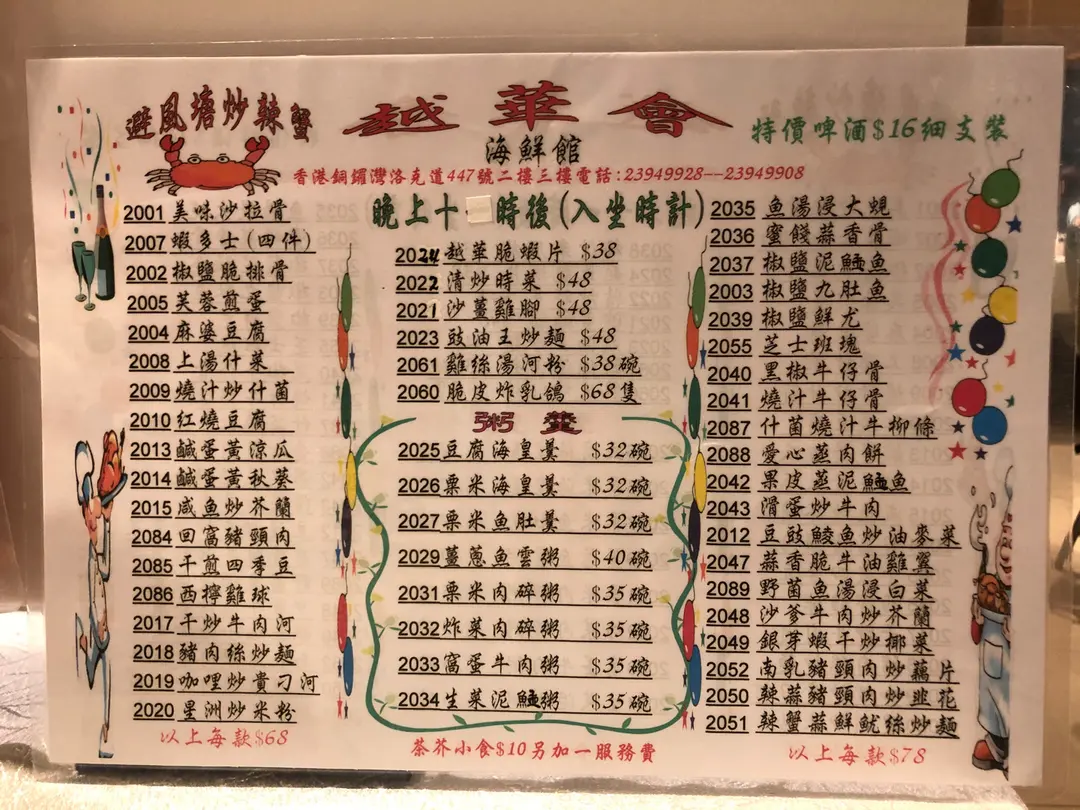 避風塘炒辣蟹
越華會
海鮮館
特價啤酒$16細支裝
香港銅鑼灣洛克道447號二樓三樓電話:23949928--23949908
晚上十 時後(入坐時計)
2001 美味沙拉骨
2007 蝦多士(四件)
2002 椒鹽脆排骨
2005 芙蓉煎蛋
2004 麻婆豆腐
2008 上湯什菜
2009 燒汁炒什菌
2010 紅燒豆腐
2013 鹹蛋黃涼瓜
2014 鹹蛋黃秋葵
2015 咸魚炒芥蘭
2084 回窩豬頸肉
2085 干煎四季豆
2086 西檸雞球
2017 干炒牛肉河
2018 豬肉絲炒麵
2019 咖哩炒貴刁河
2020 星洲炒米粉
以上每款$68
2024 越華脆蝦片 $38
2022 清炒時菜 $48
2021 沙薑雞腳 $48
2023 豉油王炒麵 $48
2061 雞絲湯河粉 $38碗
2060 脆皮炸乳鴿 $68隻
粥 羹
2025 豆腐海皇羹 $32碗
2026 粟米海皇羹 $32碗
2027 粟米魚肚羹 $32碗
2029 薑蔥魚雲粥 $40碗
2031 粟米肉碎粥 $35碗
2032 炸菜肉碎粥 $35碗
2033 窩蛋牛肉粥 $35碗
2034 生菜泥鯭粥 $35碗
茶芥小食$10另加一服務費
2035 魚湯浸大蜆
2036 蜜餞蒜香骨
2037 椒鹽泥鯭魚
2003 椒鹽九肚魚
2039 椒鹽鮮尤
2055 芝士班塊
2040 黑椒牛仔骨
2041 燒汁牛仔骨
2087 什菌燒汁牛柳條
2088 愛心蒸肉餅
2042 果皮蒸泥鯭魚
2043 滑蛋炒牛肉
2012 豆豉鯪魚炒油麥菜
2047 蒜香脆牛油雞翼
2089 野菌魚湯浸白菜
2048 沙爹牛肉炒芥蘭
2049 銀芽蝦干炒椰菜
2052 南乳豬頸肉炒藕片
2050 辣蒜豬頸肉炒韮花
2051 辣蟹蒜鮮魷絲炒麵
以上每款$78